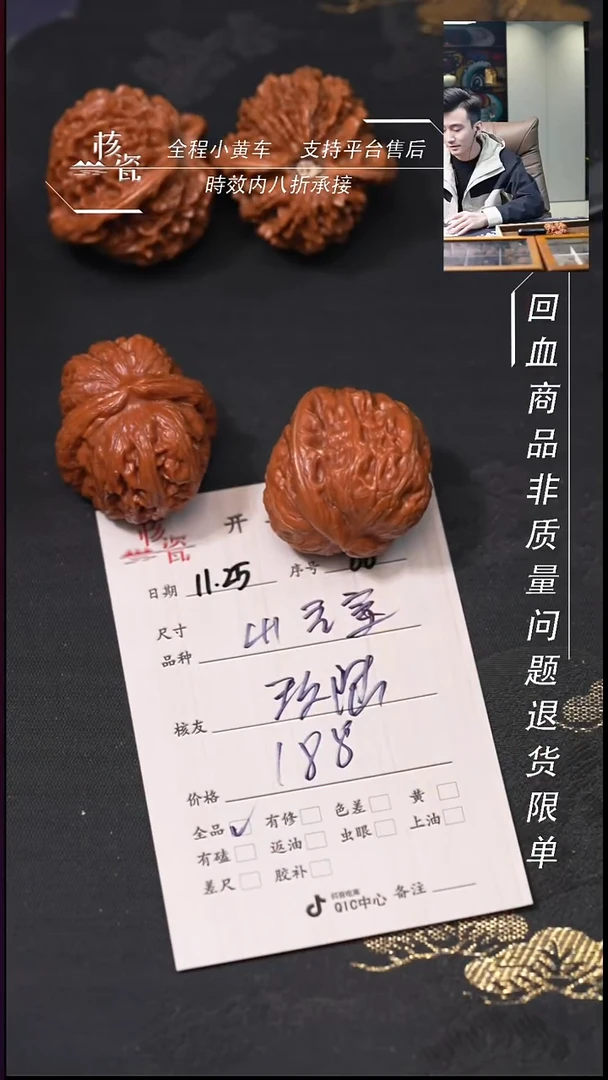 核瓷
全程小黄车 支持平台售后
時效内八折承接
回血商品非质量问题退货限单
核瓷
开
日期 11.25 序号
尺寸
品种
核友
价格 188
全品 ✓ 有修 色差 黄
有磕 返油 虫眼 上油
差尺 胶补
抖音电商
QIC中心 备注